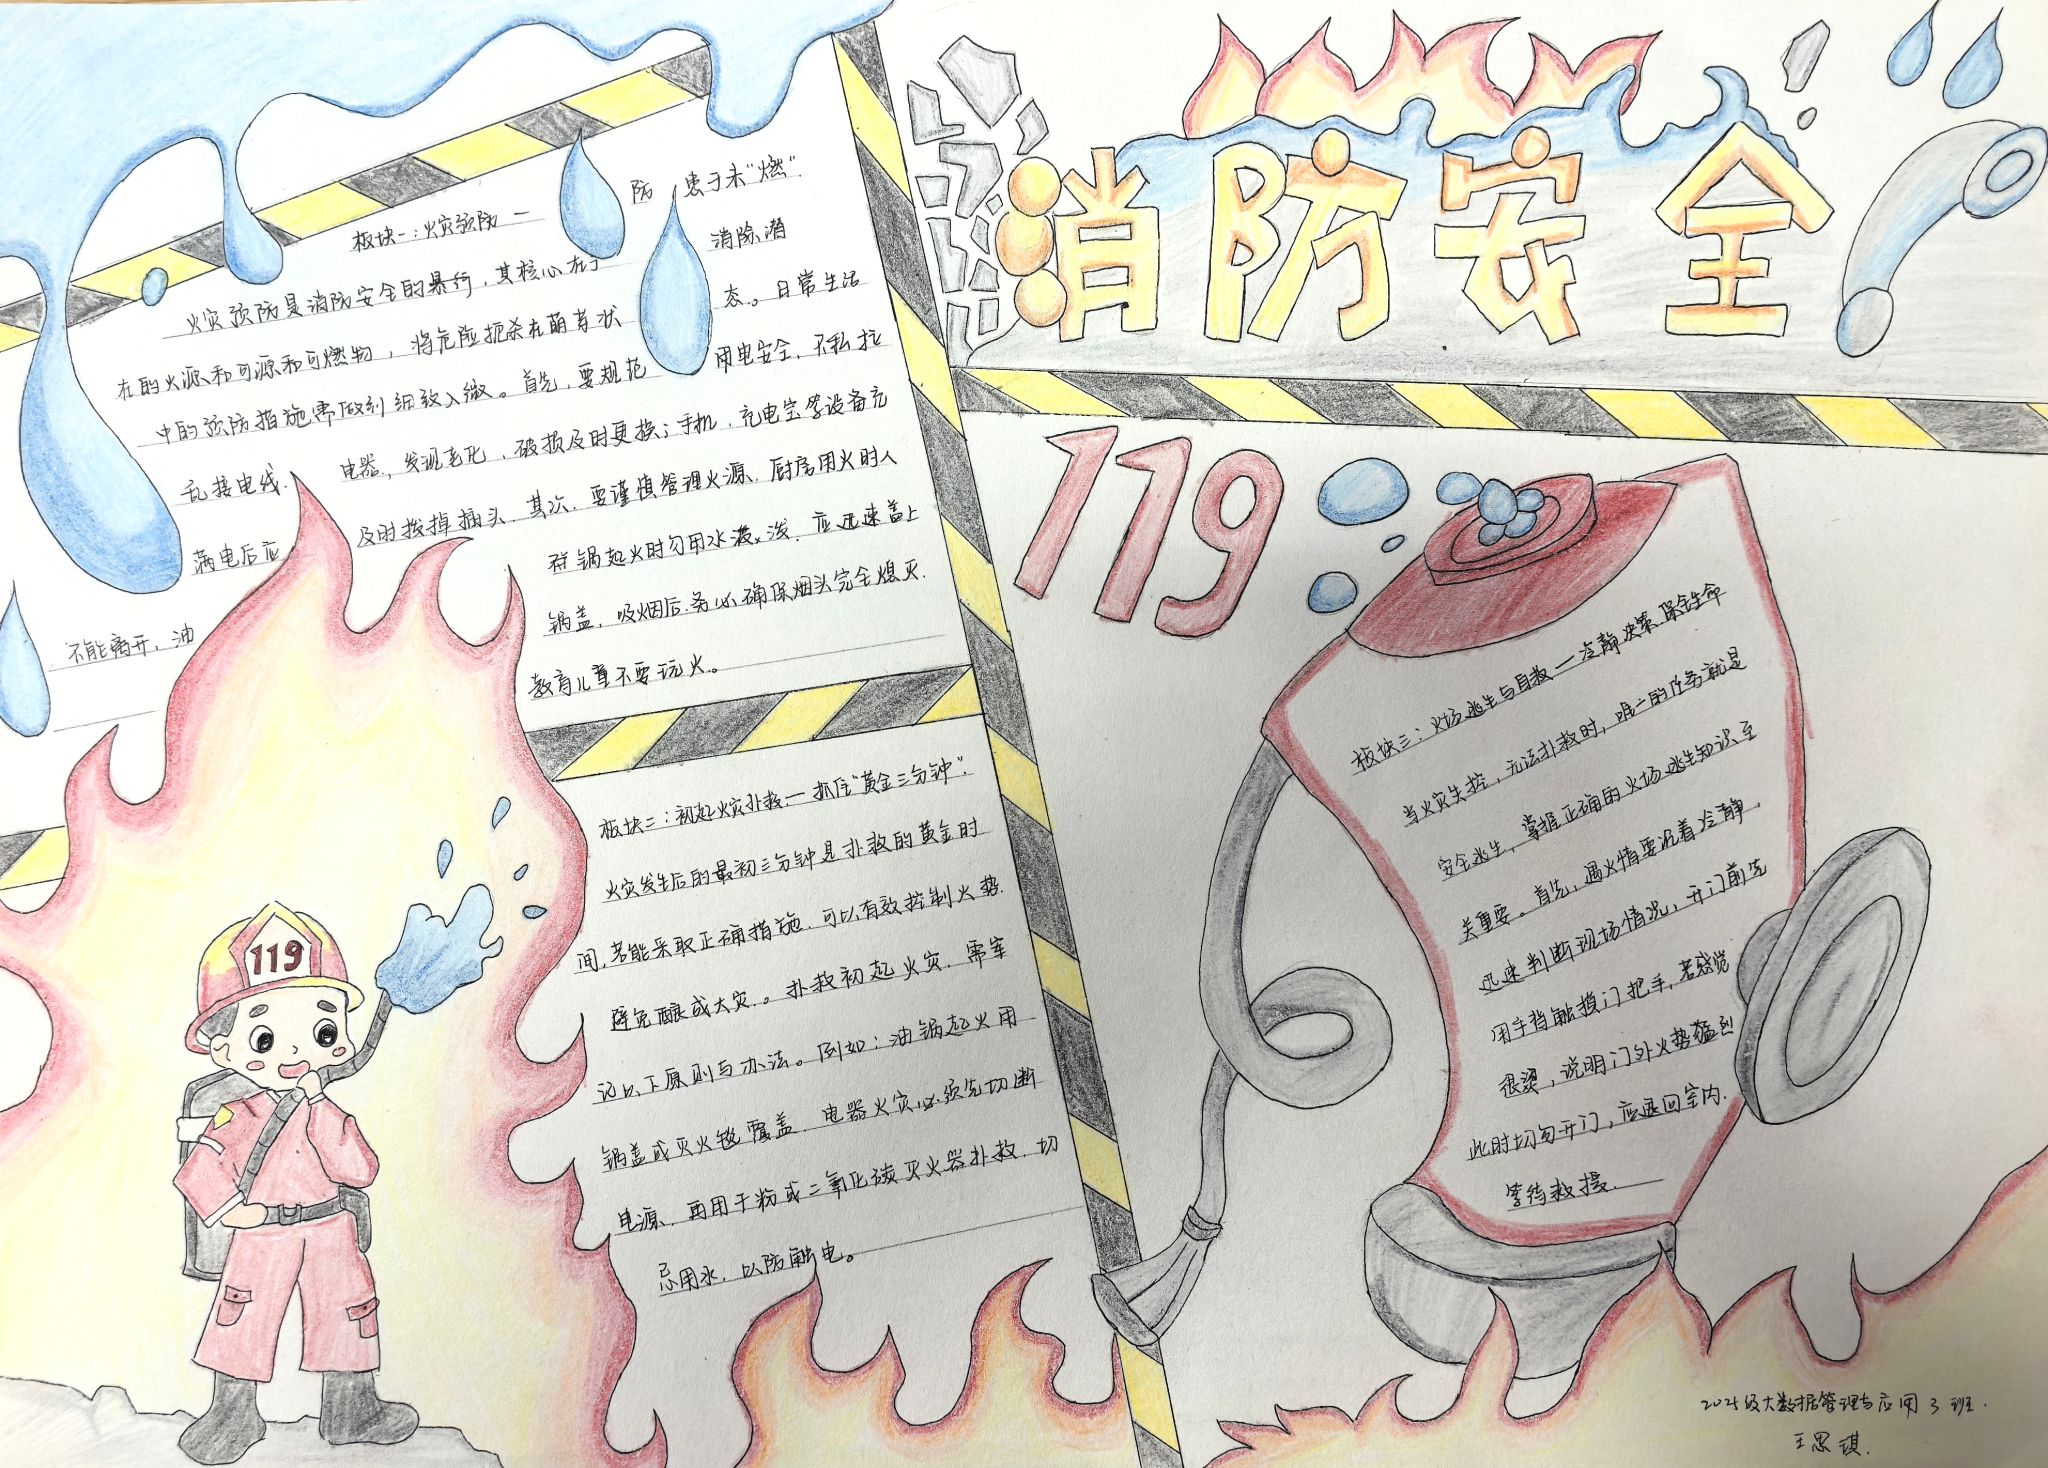 消防安全
板块一：火灾预防一防患于未“燃”.
火灾预防是消防安全的暴行，其核心在于消除潜
在的火源和可源和可燃物，将危险扼杀在萌芽状态。日常生活
中的预防措施需做到细致入微。首先，要规范用电安全，不私拉
乱接电线. 电器，发现老化，破损及时更换；手机，充电宝等设备充
满电后应及时拨掉插头. 其次，要谨慎管理火源. 厨房用火时人
不能离开，油锅起火时勿用水泼，应迅速盖上
锅盖，吸烟后.务必确保烟头完全熄灭.
教育儿童不要玩火。
板块二：初起火灾扑救一抓住“黄金三分钟”.
火灾发生后的最初三分钟是扑救的黄金时
间，若能采取正确措施，可以有效控制火势.
避免酿成大灾.。扑救初起火灾，需牢
记以下原则与办法。例如：油锅起火用
锅盖或灭火毯覆盖，电器火灾必须先切断
电源，再用干粉或二氧化碳灭火器扑救，切
忌用水，以防触电。
119
119
板块三：火场逃生与自救一冷静决策保全生命
当火灾失控，无法扑救时，唯一的任务就是
安全逃生，掌握正确的火场逃生知识至
关重要。首先，遇火情要沉着冷静，
迅速判断现场情况，开门前先
用手背触摸门把手，若感觉
很烫，说明门外火势猛烈
此时切勿开门，应退回室内.
等待救援.
2025级大数据管理与应用3班.
王思琪.